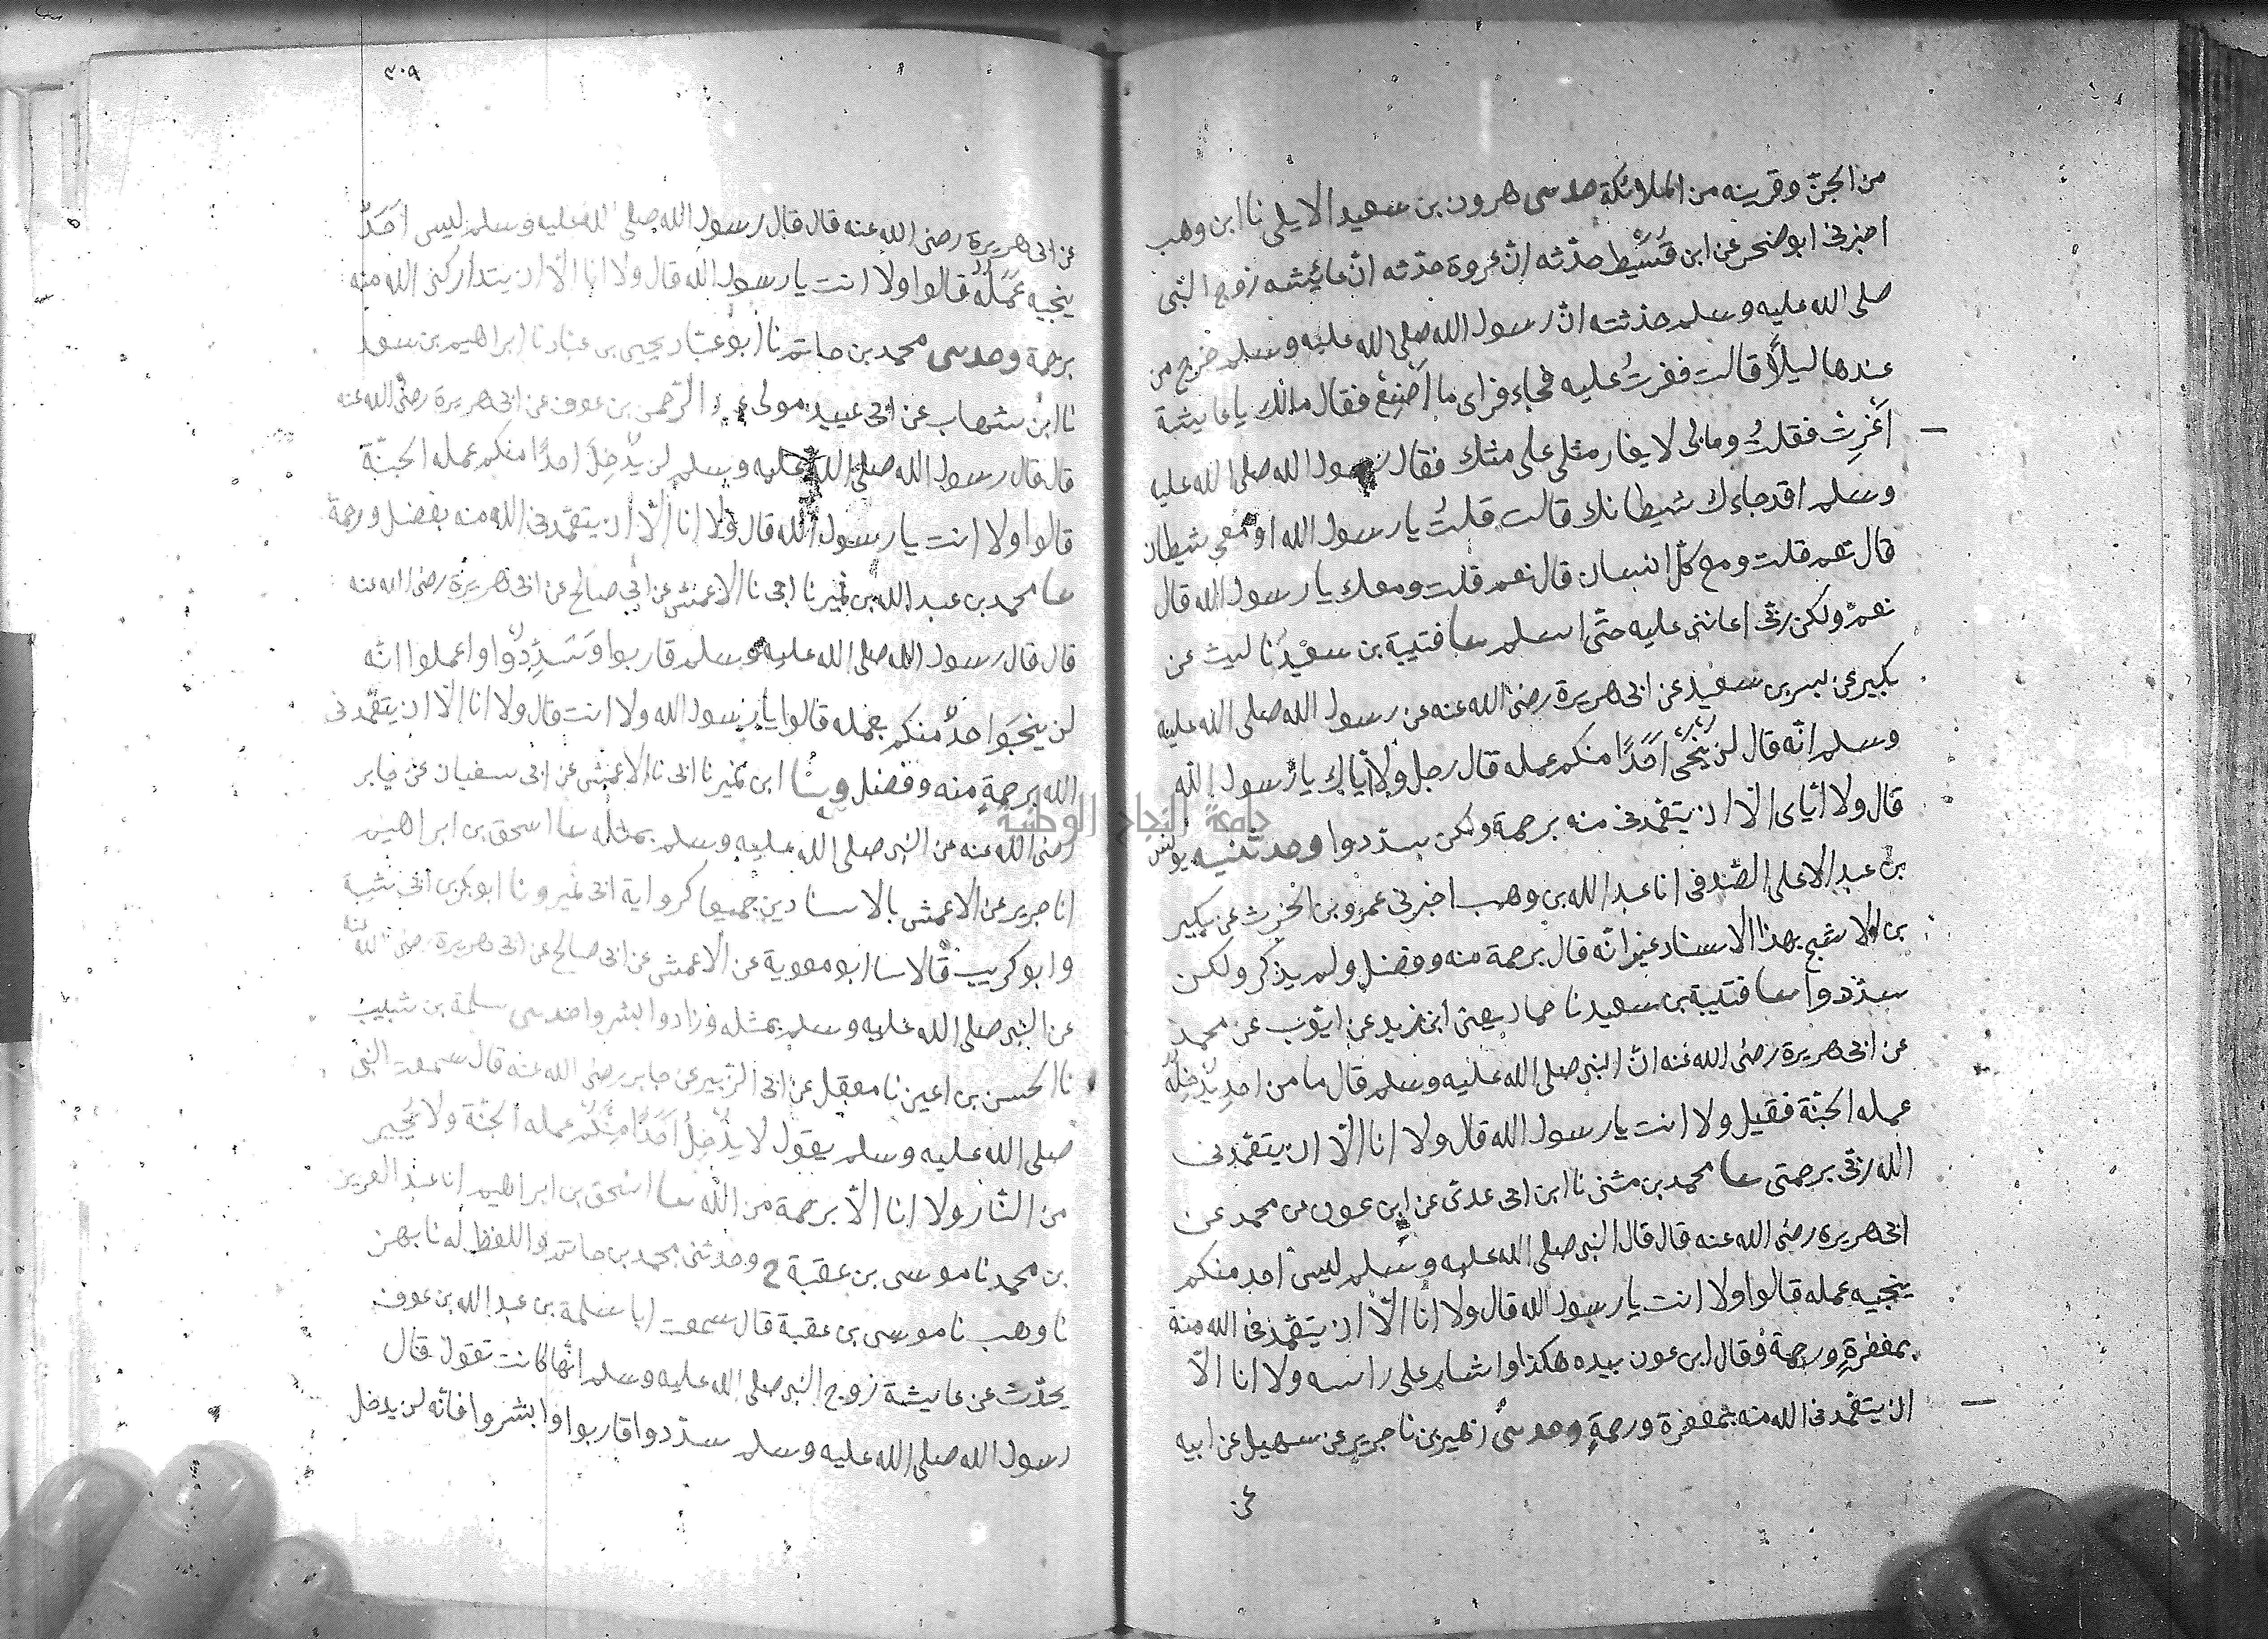 من الجن وقرينه من الملائكة حدثنى هرون بن سعيد الايلى نا ابن وهب
اخبرنى ابو صخر عن ابن قُسَيْط حدّثه انّ عروة حدّثه انّ عائيشه زوج النبى
صلى الله عليه وسلم حدثته انّ رسول الله صلى الله عليه وسلم خرج من
عندها ليلًا قالت فغرتُ عليه فجاء فراى ما اَصْنَعُ فقال مالك يا عايشة
اَغَرِتِ فقلتُ ومالى لا يغار مثلى على مثلك فقال رسول الله صلى الله عليه
وسلم اقد جاءك شيطانك قالت قلتُ يا رسول الله او معى شيطان
قال نعم قلت ومع كلّ انسان قال نعم قلت ومعك يا رسول الله قال
نعم ولكن ربّى اعاننى عليه حتّى اسلم حدثنا قتيبة بن سعيد نا ليث عن
بكير عن بسر بن سعيد عن ابى هريرة رضى الله عنه عن رسول الله صلى الله عليه
وسلم انّه قال لن يُنْجِىَ اَحَدًا منكم عمله قال رجل ولا اياك يا رسول الله
قال ولا ايّاى الّا ان يتغمدنى منه برحمة ولكن سدّدوا وحدثنيه يونس
بن عبد الاعلى الصّدفى انا عبد الله بن وهب اخبرنى عمرو بن الحرث عن بكير
بن الاشج بهذا الاسناد غير انّه قال برحمة منه وفضل ولم يذكر ولكن
سدّدوا حدثنا قتيبة بن سعيد نا حماد يعنى ابن زيد عن ايّوب عن محمد
عن ابى هريرة رضى الله عنه انّ النبى صلى الله عليه وسلم قال ما من احدٍ يُدْخِلُهُ
عمله الجنّة فقيل ولا انت يا رسول الله قال ولا انا الّا ان يتغمّدنى
الله ربّى برحمتى حدثنا محمد بن مثنى نا ابن ابى عدىّ عن ابن عون عن محمد عن
ابى هريره رضى الله عنه قال قال النبى صلى الله عليه وسلم ليس احد منكم
ينجيه عمله قالوا ولا انت يا رسول الله قال ولا انا الّا ان يتغمّدنى الله منه
بمغفرةٍ ورحمة وقال ابن عون بيده هكذا واشار على راسه ولا انا الّا
ان يتغمّدنى الله منه بمغفرة ورحمةٍ وحدثنى زهير بن نا جرير عن سهيل عن ابيه
عن
٣٠٩
عن ابى هريرة رضى الله عنه قال قال رسول الله صلى الله عليه وسلم ليس اَحَدٌ
ينجيه عَمَلُهُ قالوا ولا انت يا رسول الله قال ولا انا الّا ان يتداركنى الله منه
برحمة وحدثنى محمد بن حاتم نا ابو عبّاد يحيى بن عبّاد نا ابراهيم بن سعد
نا ابن شهاب عن ابى عبيد مولى عبد الرّحمن بن عوف عن ابى هريرة رضى الله عنه
قال قال رسول الله صلى الله عليه وسلم لن يُدْخِلَ احدًا منكم عمله الجنّة
قالوا ولا انت يا رسول الله قال ولا انا الّا ان يتغمّدنى الله منه بفضل ورحمة
حدثنا محمد بن عبد الله بن نمير نا ابى نا الاعمش عن ابى صالح عن ابى هريرة رضى الله عنه
قال قال رسول الله صلى الله عليه وسلم قاربوا وَسَدِّدُوا واعملوا انّه
لن ينجوَ احدٌ منكم بعمله قالوا يا رسول الله ولا انت قال ولا انا الّا ان يتغمّدنى
الله برحمةٍ منه وفضل وحدثنا ابن نمير نا ابى نا الاعمش عن ابى سفيان عن جابر
رضى الله عنه عن النبى صلى الله عليه وسلم بمثله حدثنا اسحق بن ابراهيم
انا جرير عن الاعمش بالاسنادين جميعا كرواية ابى نمير ونا ابو بكر بن ابى شيبة
وابو كريب قالا حدثنا ابو معوية عن الاعمش عن ابى صالح عن ابى هريرة رضى الله عنه
عن النبى صلى الله عليه وسلم بمثله وزاد وابشروا حدثنى سلمة بن شبيب
نا الحسن بن اعين نا معقل عن ابى الزّبير عن جابر رضى الله عنه قال سمعت النبى
صلى الله عليه وسلم يقول لا يُدْخِلُ اَحَدًا مِنْكُمْ عمله الجنّة ولا يُجير
من النّار ولا انا الّا برحمة من الله حدثنا اسحق بن ابراهيم انا عبد العزيز
بن محمد نا موسى بن عقبة ح وحدثنى محمد بن حاتم واللفظ له نا بهز
نا وهب نا موسى بن عقبة قال سمعت ابا سلمة بن عبد الله بن عوف
يحدّث عن عايشة زوج النبى صلى الله عليه وسلم انّها كانت تقول قال
رسول الله صلى الله عليه وسلم سدّدوا قاربوا وابشروا فانّه لن يدخل
جامعة النجاح الوطنية